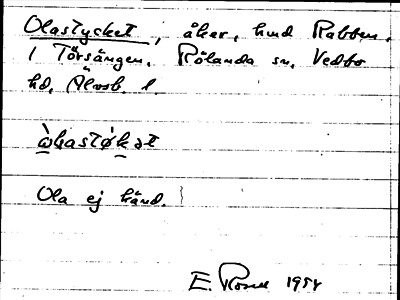 Olastycket, åker, hmd Rabben,
i Törsängen, Rölanda sn, Vedbo
hd, Älvsb. l.
Ola ej känd.
E. Rosell 195